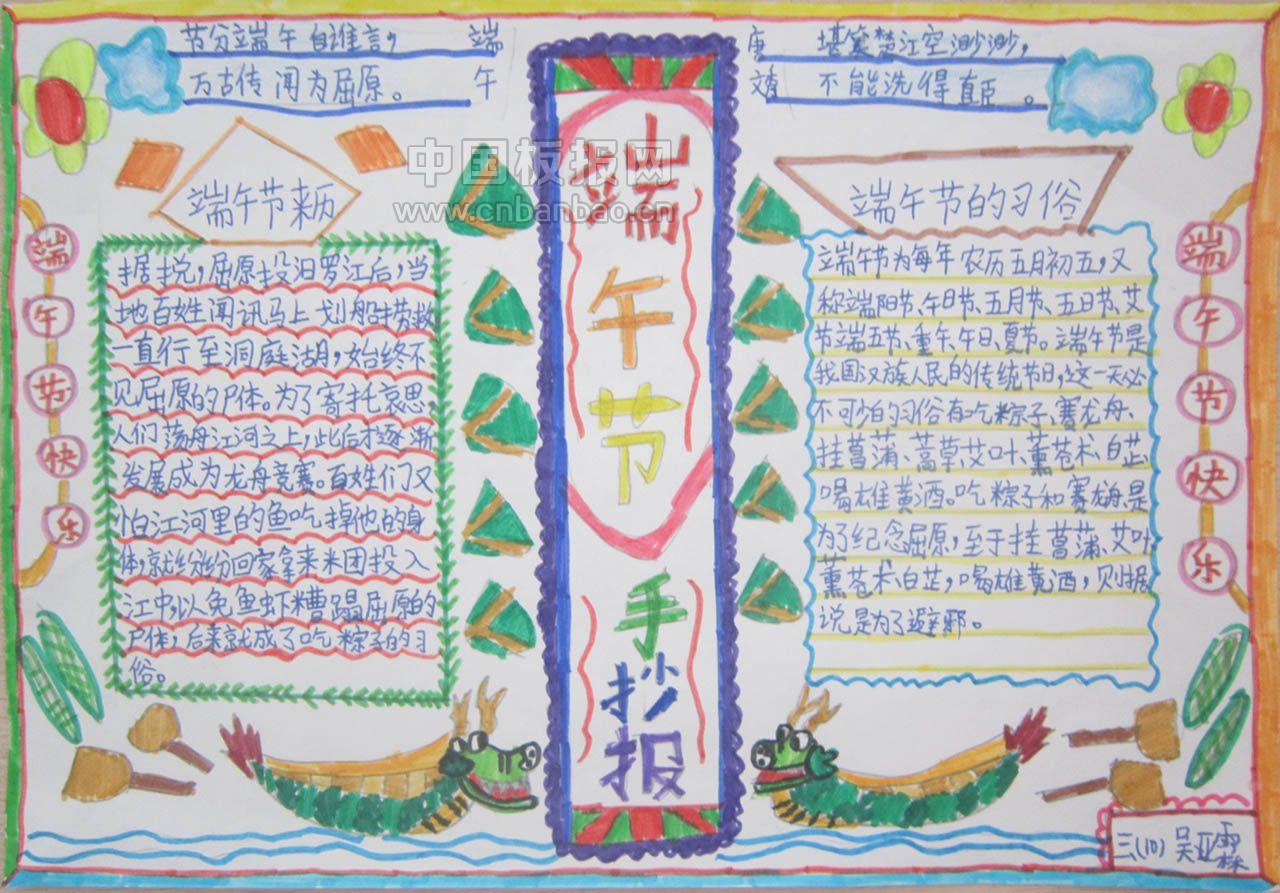 节分端午自谁言,
万古传闻为屈原。
端
午
唐
文秀
堪笑楚江空渺渺,
不能洗得直臣。
中国板报网
www.cnbanbao.cn
端午节来历
据说,屈原投汨罗江后,当
地百姓闻讯马上划船捞救
一直行至洞庭湖,始终不
见屈原的尸体。为了寄托哀思,
人们荡舟江河之上,此后才逐渐
发展成为龙舟竞赛。百姓们又
怕江河里的鱼吃掉他的身
体,就纷纷回家拿来米团投入
江中,以免鱼虾糟蹋屈原的
尸体,后来就成了吃粽子的习
俗。
端午节快乐
端午节
手抄报
端午节的习俗
端午节为每年农历五月初五,又
称端阳节、午日节、五月节、五日节、艾
节端五节、重午、午日、夏节。端午节是
我国汉族人民的传统节日,这一天必
不可少的习俗有吃粽子,赛龙舟、
挂菖蒲、蒿草、艾叶、薰苍术、白芷
喝雄黄酒。吃粽子和赛龙舟,是
为了纪念屈原,至于挂菖蒲、艾叶
薰苍术、白芷,喝雄黄酒,则据
说是为了避邪。
端午节快乐
三(10) 吴亚霖